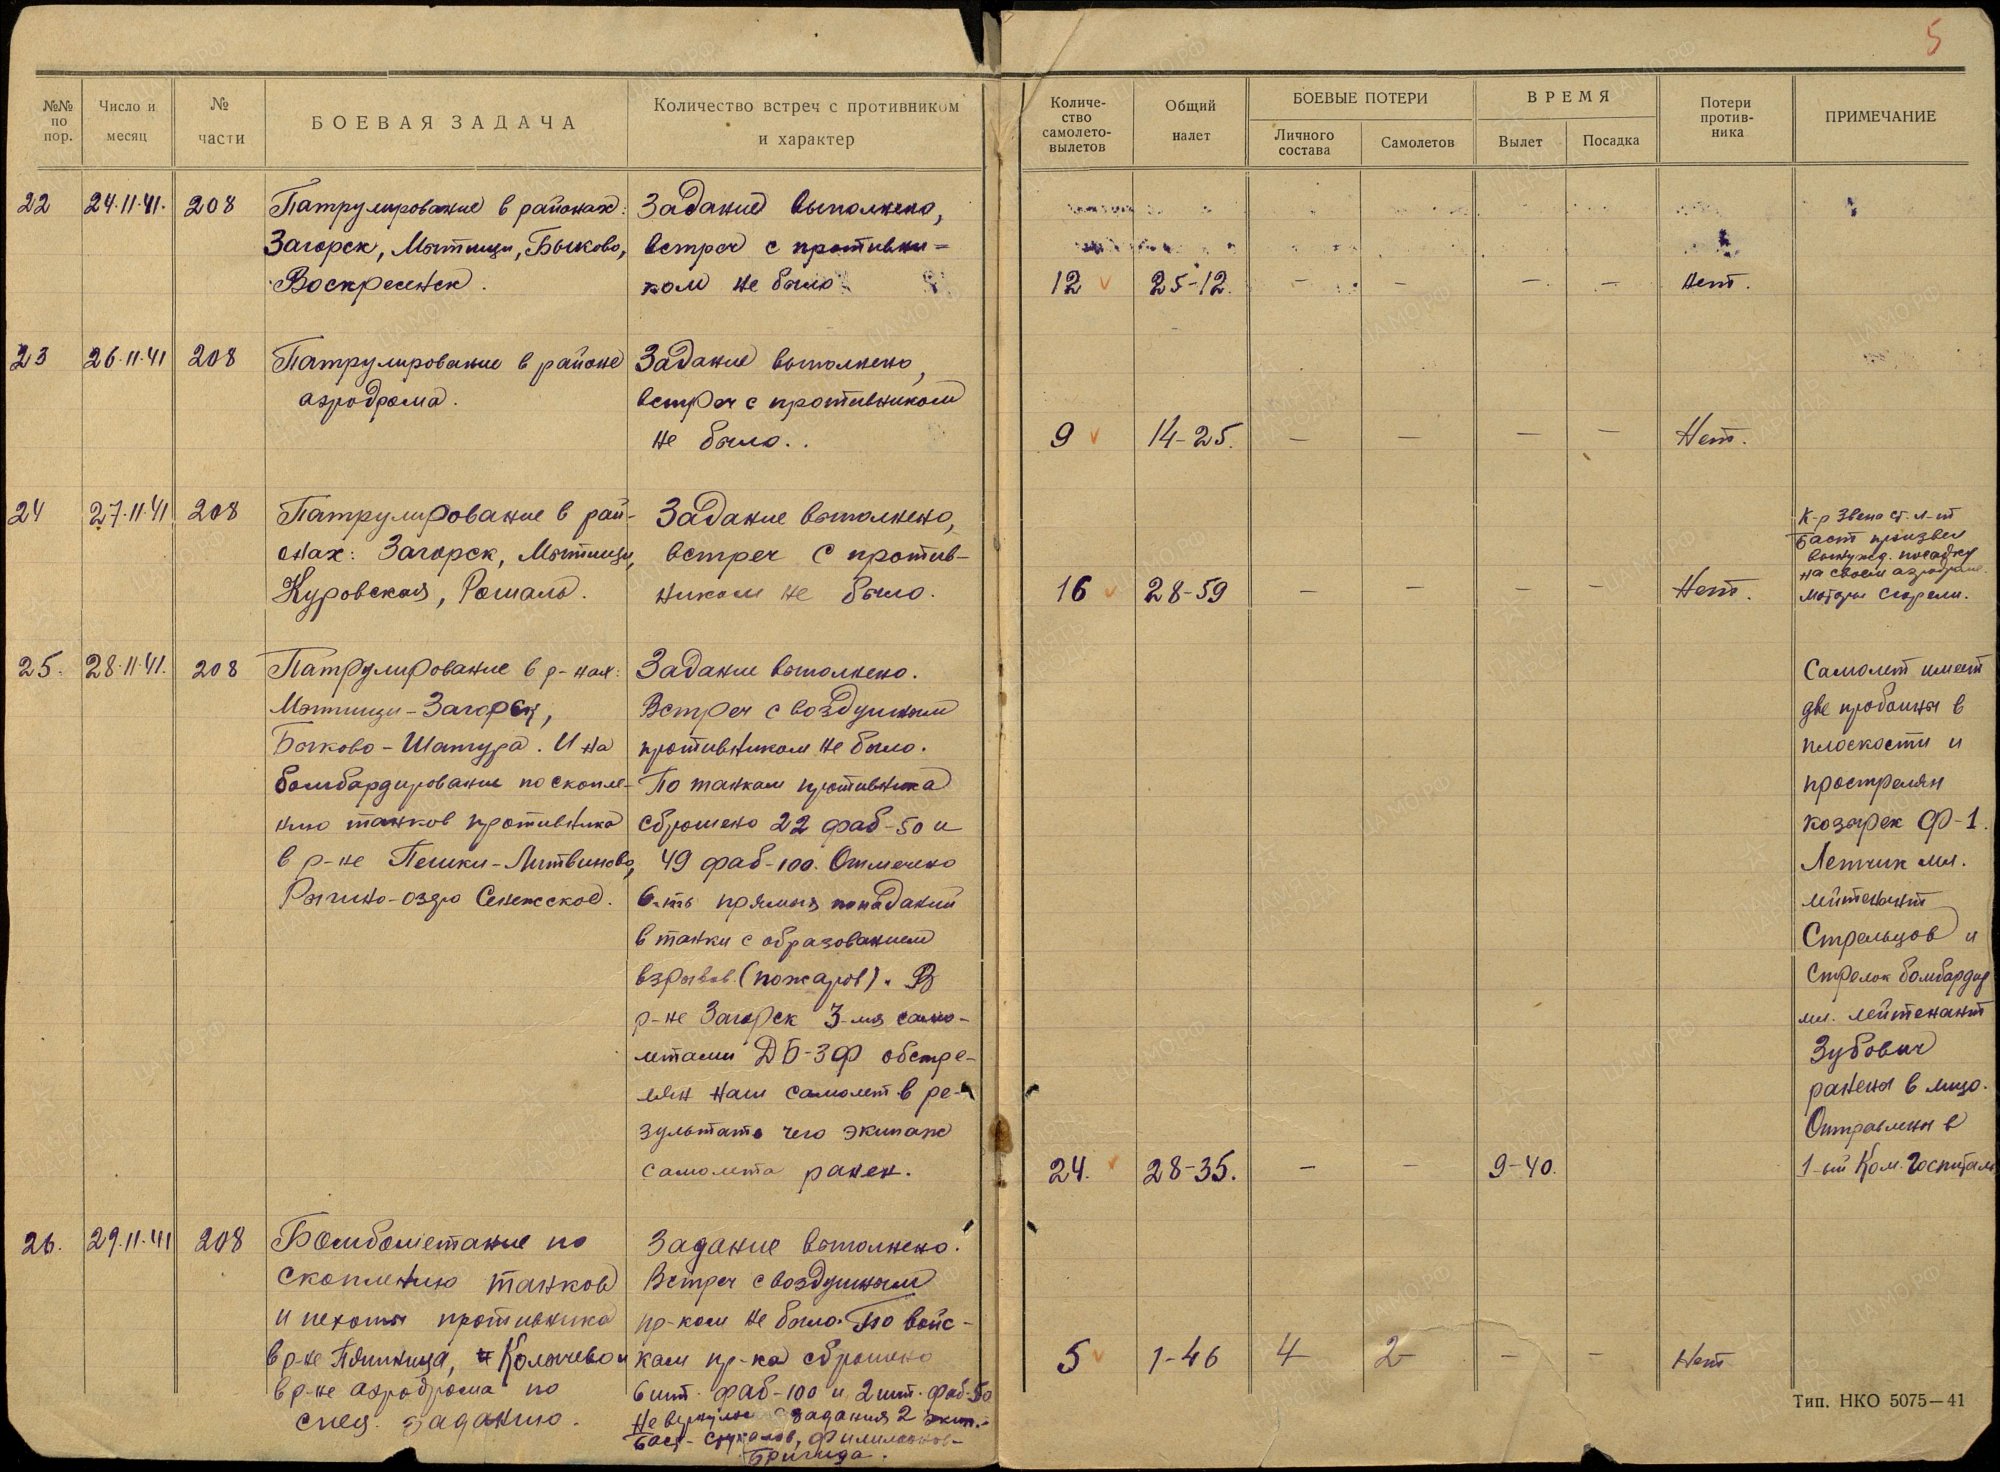 5
№№ по пор.
Число и месяц
№ части
БОЕВАЯ ЗАДАЧА
Количество встреч с противником и характер
Количе-
ство
самолето-
вылетов
Общий
налет
БОЕВЫЕ ПОТЕРИ
Личного
состава
Самолетов
ВРЕМЯ
Вылет
Посадка
Потери
против-
ника
ПРИМЕЧАНИЕ
22
24.11.41.
208
Патрулирование в районах:
Загорск, Мытищи, Быково,
Воскресенск.
Задание выполнено,
встреч с противни-
ком не было.
12
25-12.
—
—
—
—
Нет.
23
26.11.41
208
Патрулирование в районе
аэродрома.
Задание выполнено,
встреч с противником
не было.
9
14-25.
—
—
—
—
Нет.
24
27.11.41
208
Патрулирование в рай-
онах: Загорск, Мытищи,
Куровская, Рошаль.
Задание выполнено,
встреч с против-
ником не было.
16
28-59
—
—
—
—
Нет.
К-р звена ст. л-т
Баст произвел
вынужд. посадку
на своем аэродроме.
Моторы сгорели.
25.
28.11.41.
208
Патрулирование в р-нах:
Мытищи-Загорск,
Быково-Шатура. И на
бомбардирование по скопле-
нию танков противника
в р-не Пешки-Литвиново,
озеро Сенежское.
Задание выполнено.
Встреч с воздушным
противником не было.
По танкам противника
сброшено 22 фаб-50 и
49 фаб-100. Отмечено
6-ть прямых попаданий
в танки с образованием
взрывов (пожаров). В
р-не Загорск 3-мя само-
летами ДБ-3Ф обстре-
лян наш самолет в ре-
зультате чего экипаж
самолета ранен.
24.
28-35.
—
—
9-40.
Самолет имеет
две пробоины в
плоскости и
прострелян
козырек Ф-1.
Летчик мл.
лейтенант
Стрельцов и
стрелок бомбардир
мл. лейтенант
Зубович
ранены в лицо.
Отправлены в
1-ый Ком. госпиталь
26.
29.11.41
208
Бомбометание по
скоплению танков
и пехоты противника
в р-не Пешки, Колычево и
в р-не аэродрома по
спец. заданию.
Задание выполнено.
Встреч с воздушным
пр-ком не было. По войс-
кам пр-ка сброшено
6 шт. фаб-100 и 2 шт. фаб-50
Не вернулось с задания 2 экип.-
Баст-
Бригида.
5
1-46
4
2
—
—
Нет
Тип. НКО 5075—41